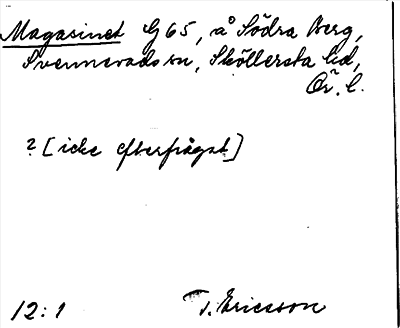 Magasinet G65, å Södra Berg,
Svennevads sn, Sköllersta hd,
Ör. l.
? [icke efterfrågat]
12:1 T. Ericsson